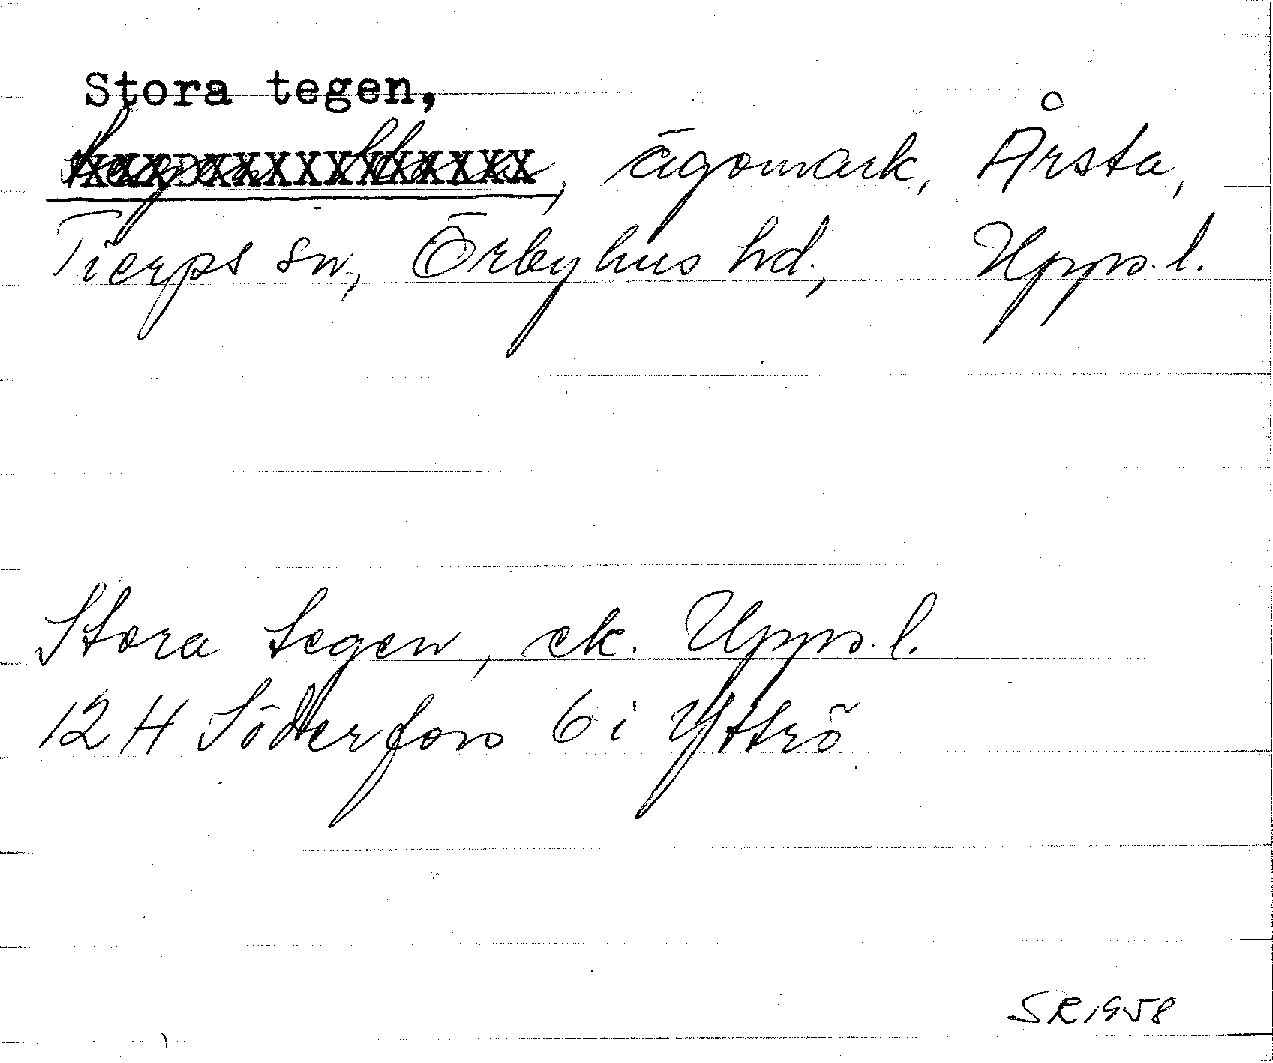 Stora tegen,
, ägomark, Årsta,
Tierps sn, Örbyhus hd., Upps. l.
Stora tegen, ek. Upps. l.
12 H Söderfors 6 i Yttrö
SR 1958